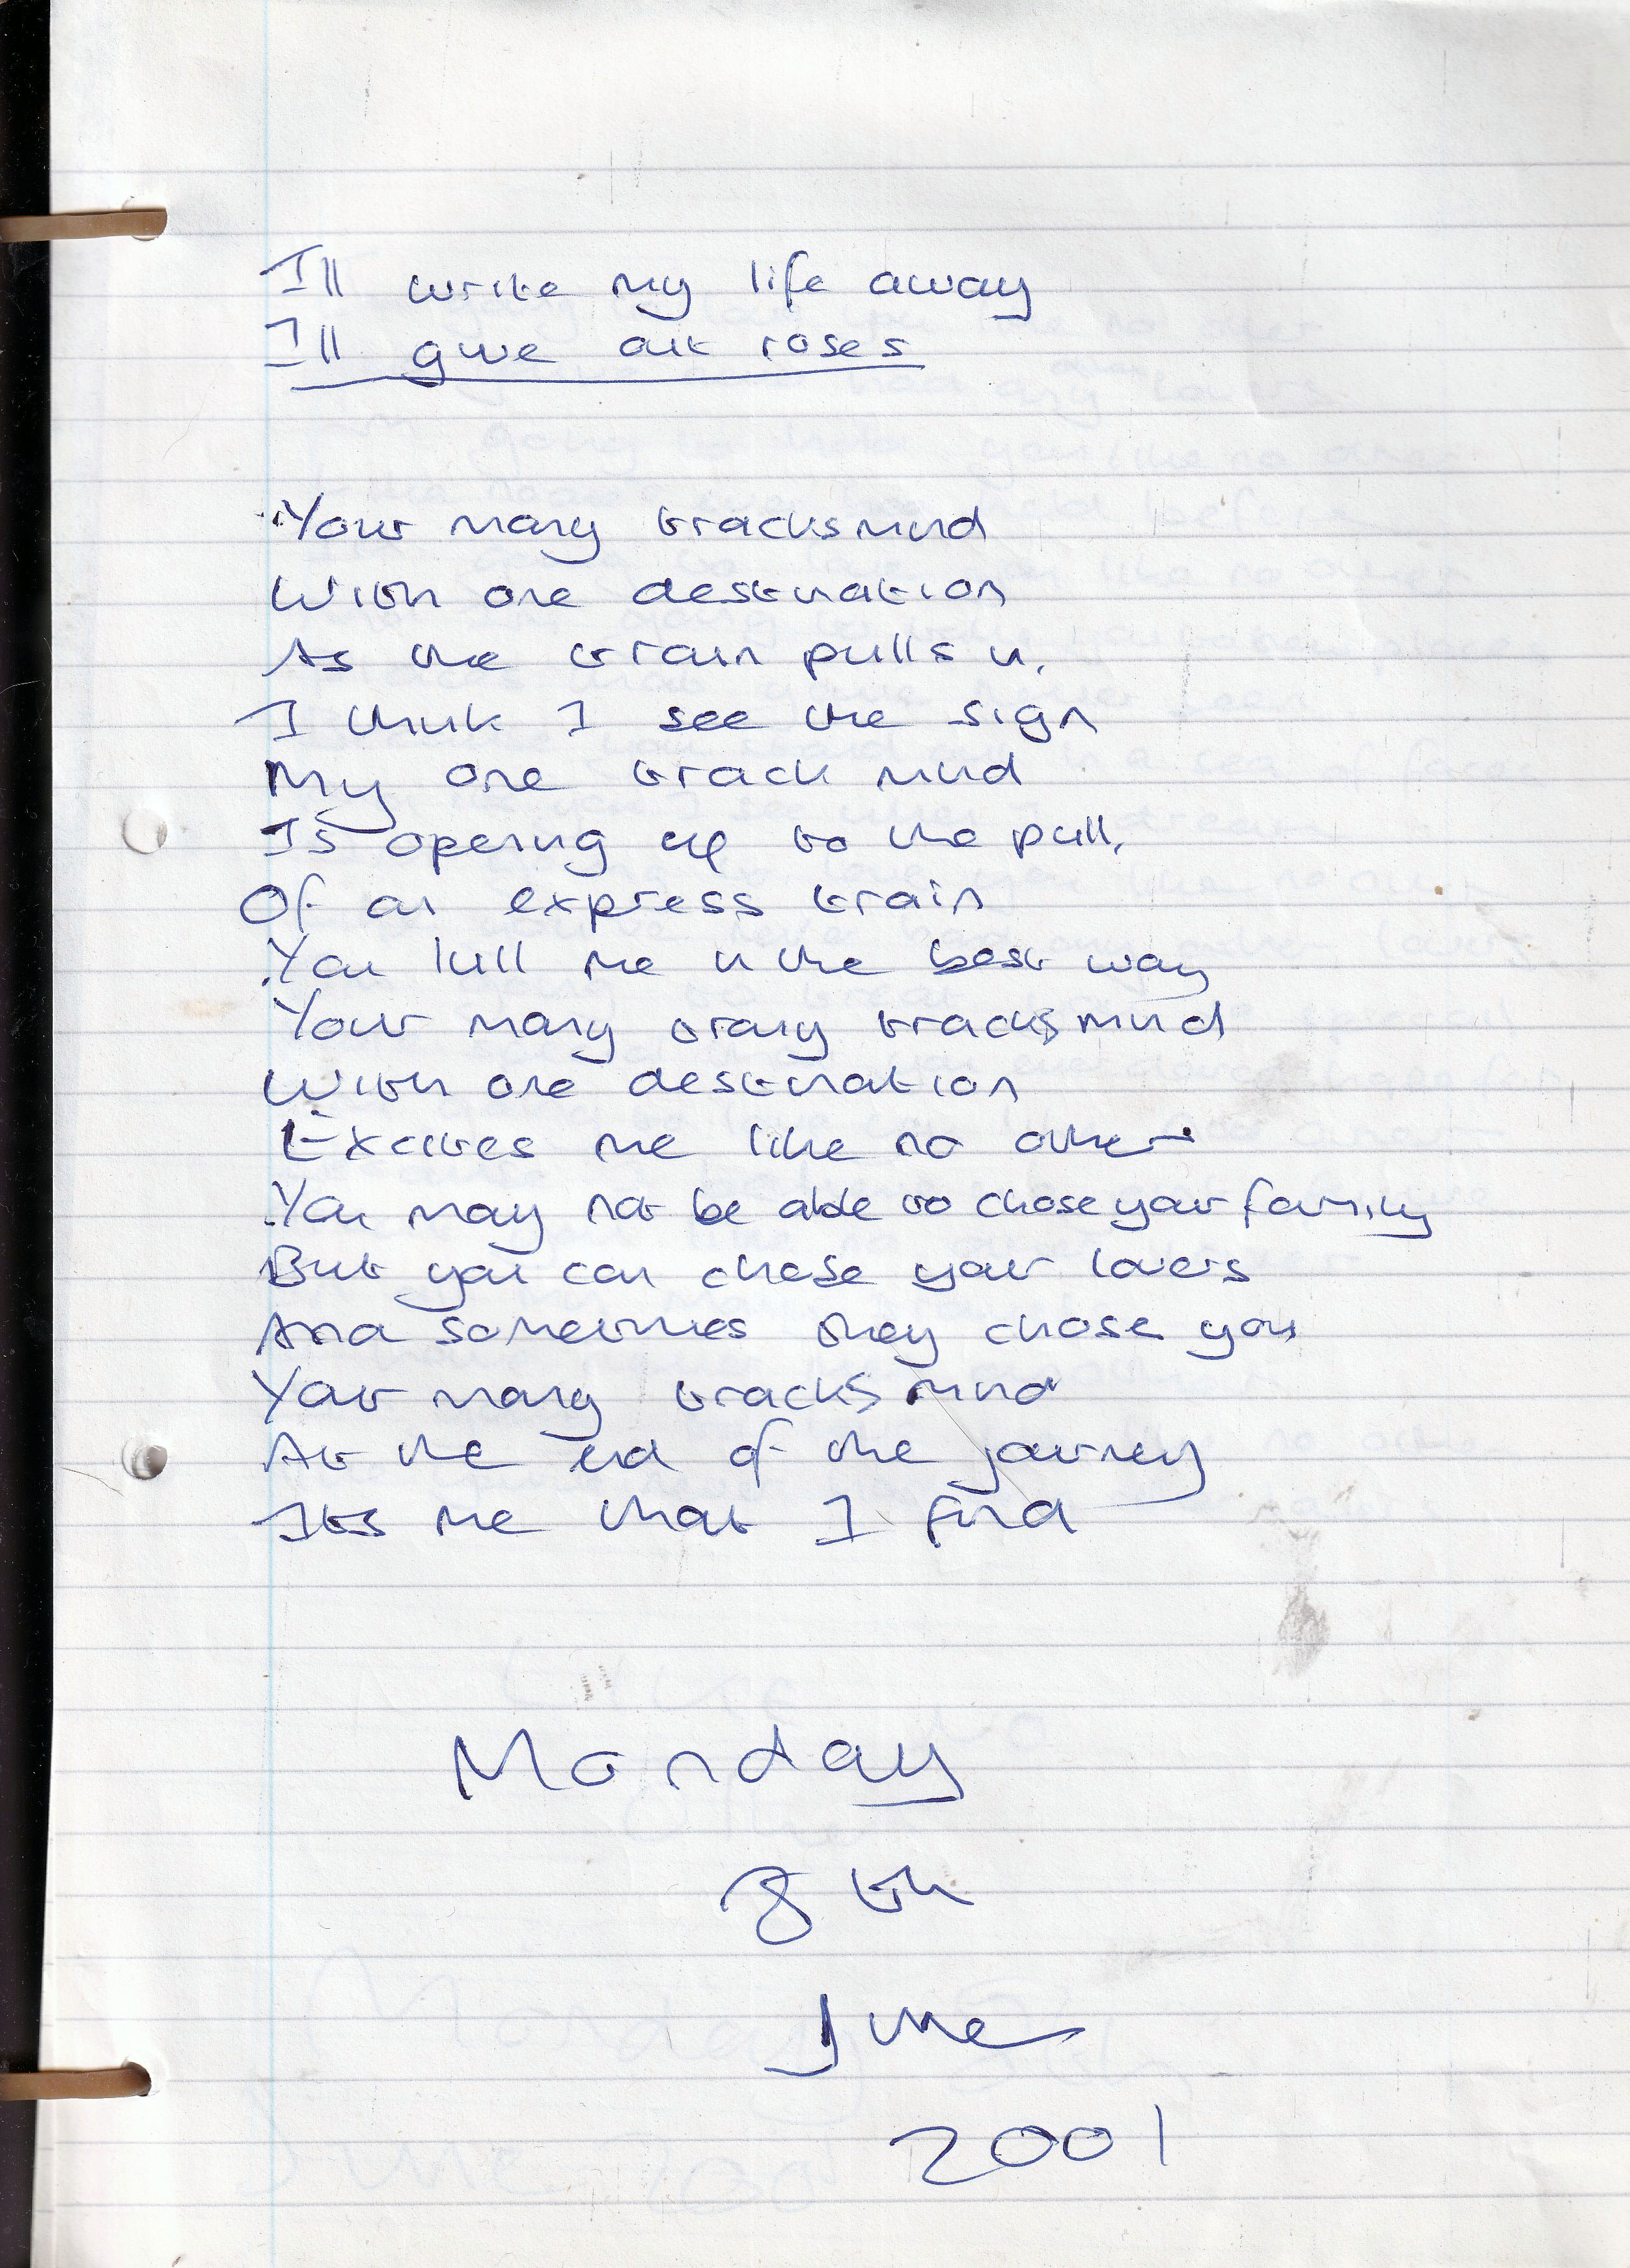 Ill write my life away
Ill give out roses
Your many tracks mind
With one destination
As the train pulls in.
I think I see the sign
My one track mind
Is opening up to the pull,
Of an express train
You kill me in the best way
Your many many tracks mind
With one destination
Excites me like no other
You may not be able to chose your family
But you can chose your lovers
And sometimes they chose you
Your many tracks mind
At the end of the journey
Its me that I find
Monday
8th
June
2001